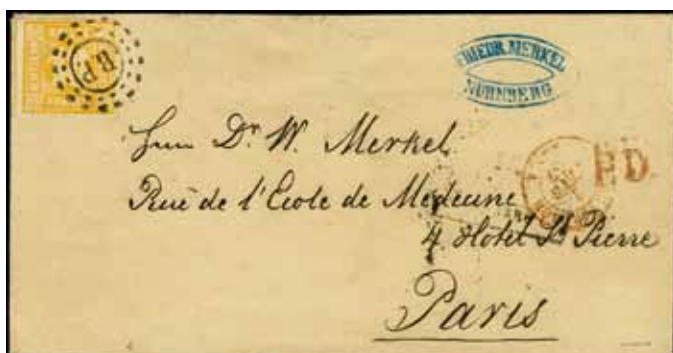 B.P.
FRIEDR. MERKEL
NÜRNBERG
Herrn Dr. W. Merkel
Rue de l'Ecole de Medecine
P.D.
4. Hôtel St Pierre
Paris